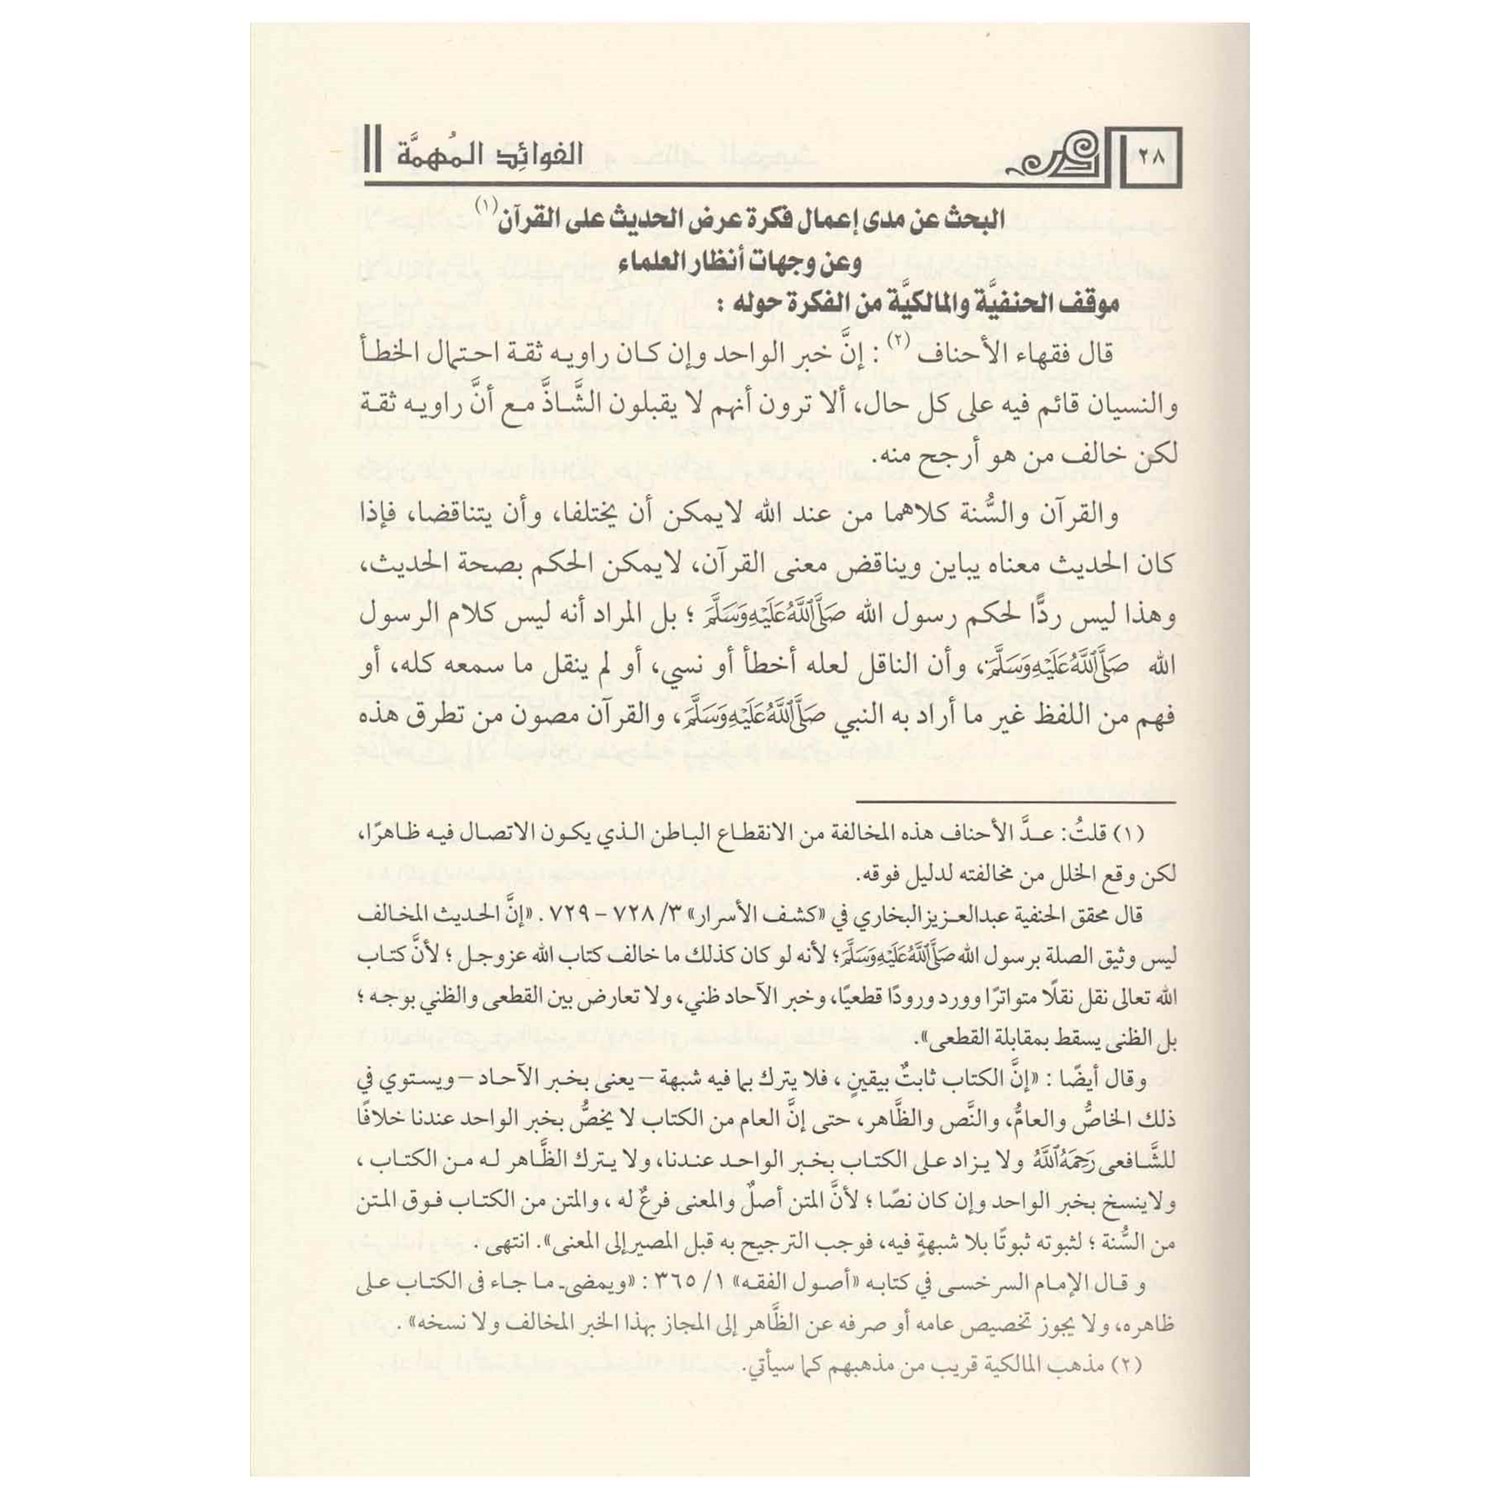 ٢٨
الفوائِد المُهمَّة
البحث عن مدى إعمال فكرة عرض الحديث على القرآن(١)
وعن وجهات أنظار العلماء
موقف الحنفيَّة والمالكيَّة من الفكرة حوله :
قال فقهاء الأحناف (٢) : إنَّ خبر الواحد وإن كان راويه ثقة احتمال الخطأ
والنسيان قائم فيه على كل حال، ألا ترون أنهم لا يقبلون الشَّاذَّ مع أنَّ راويه ثقة
لكن خالف من هو أرجح منه.
والقرآن والسُّنة كلاهما من عند الله لايمكن أن يختلفا، وأن يتناقضا، فإذا
كان الحديث معناه يباين ويناقض معنى القرآن، لايمكن الحكم بصحة الحديث،
وهذا ليس ردًّا لحكم رسول الله صَلَّىٱللَّهُ عَلَيْهِ وَسَلَّمَ ؛ بل المراد أنه ليس كلام الرسول
الله صَلَّىٱللَّهُ عَلَيْهِ وَسَلَّمَ، وأن الناقل لعله أخطأ أو نسي، أو لم ينقل ما سمعه كله، أو
فهم من اللفظ غير ما أراد به النبي صَلَّىٱللَّهُ عَلَيْهِ وَسَلَّمَ، والقرآن مصون من تطرق هذه
(١) قلتُ: عدَّ الأحناف هذه المخالفة من الانقطاع الباطن الذي يكون الاتصال فيه ظاهرًا،
لكن وقع الخلل من مخالفته لدليل فوقه.
قال محقق الحنفية عبدالعزيزالبخاري في «كشف الأسرار» ٣/ ٧٢٨ – ٧٢٩ . «إنَّ الحديث المخالف
ليس وثيق الصلة برسول الله صَلَّىٱللَّهُ عَلَيْهِ وَسَلَّمَ؛ لأنه لو كان كذلك ما خالف كتاب الله عزوجل ؛ لأنَّ كتاب
الله تعالى نقل نقلًا متواترًا وورد ورودًا قطعيًا، وخبر الآحاد ظني، ولا تعارض بين القطعى والظني بوجه ؛
بل الظنى يسقط بمقابلة القطعى».
وقال أيضًا : «إنَّ الكتاب ثابتٌ بيقينٍ ، فلا يترك بما فيه شبهة – يعنى بخبر الآحاد – ويستوي في
ذلك الخاصُّ والعامُّ، والنَّص والظَّاهر، حتى إنَّ العام من الكتاب لا يخصُّ بخبر الواحد عندنا خلافًا
للشَّافعى رَحِمَهُ ٱللَّهُ ولا يزاد على الكتاب بخبر الواحد عندنا، ولا يترك الظَّاهر له من الكتاب ،
ولاينسخ بخبر الواحد وإن كان نصًا ؛ لأنَّ المتن أصلٌ والمعنى فرعٌ له ، والمتن من الكتاب فوق المتن
من السُّنة ؛ لثبوته ثبوتًا بلا شبهةٍ فيه، فوجب الترجيح به قبل المصيرإلى المعنى». انتهى .
و قال الإمام السرخسى في كتابه «أصول الفقه» ١/ ٣٦٥ : «ويمضى ما جاء فى الكتاب على
ظاهره، ولا يجوز تخصيص عامه أو صرفه عن الظَّاهر إلى المجاز بهذا الخبر المخالف ولا نسخه» .
(٢) مذهب المالكية قريب من مذهبهم كما سيأتي.